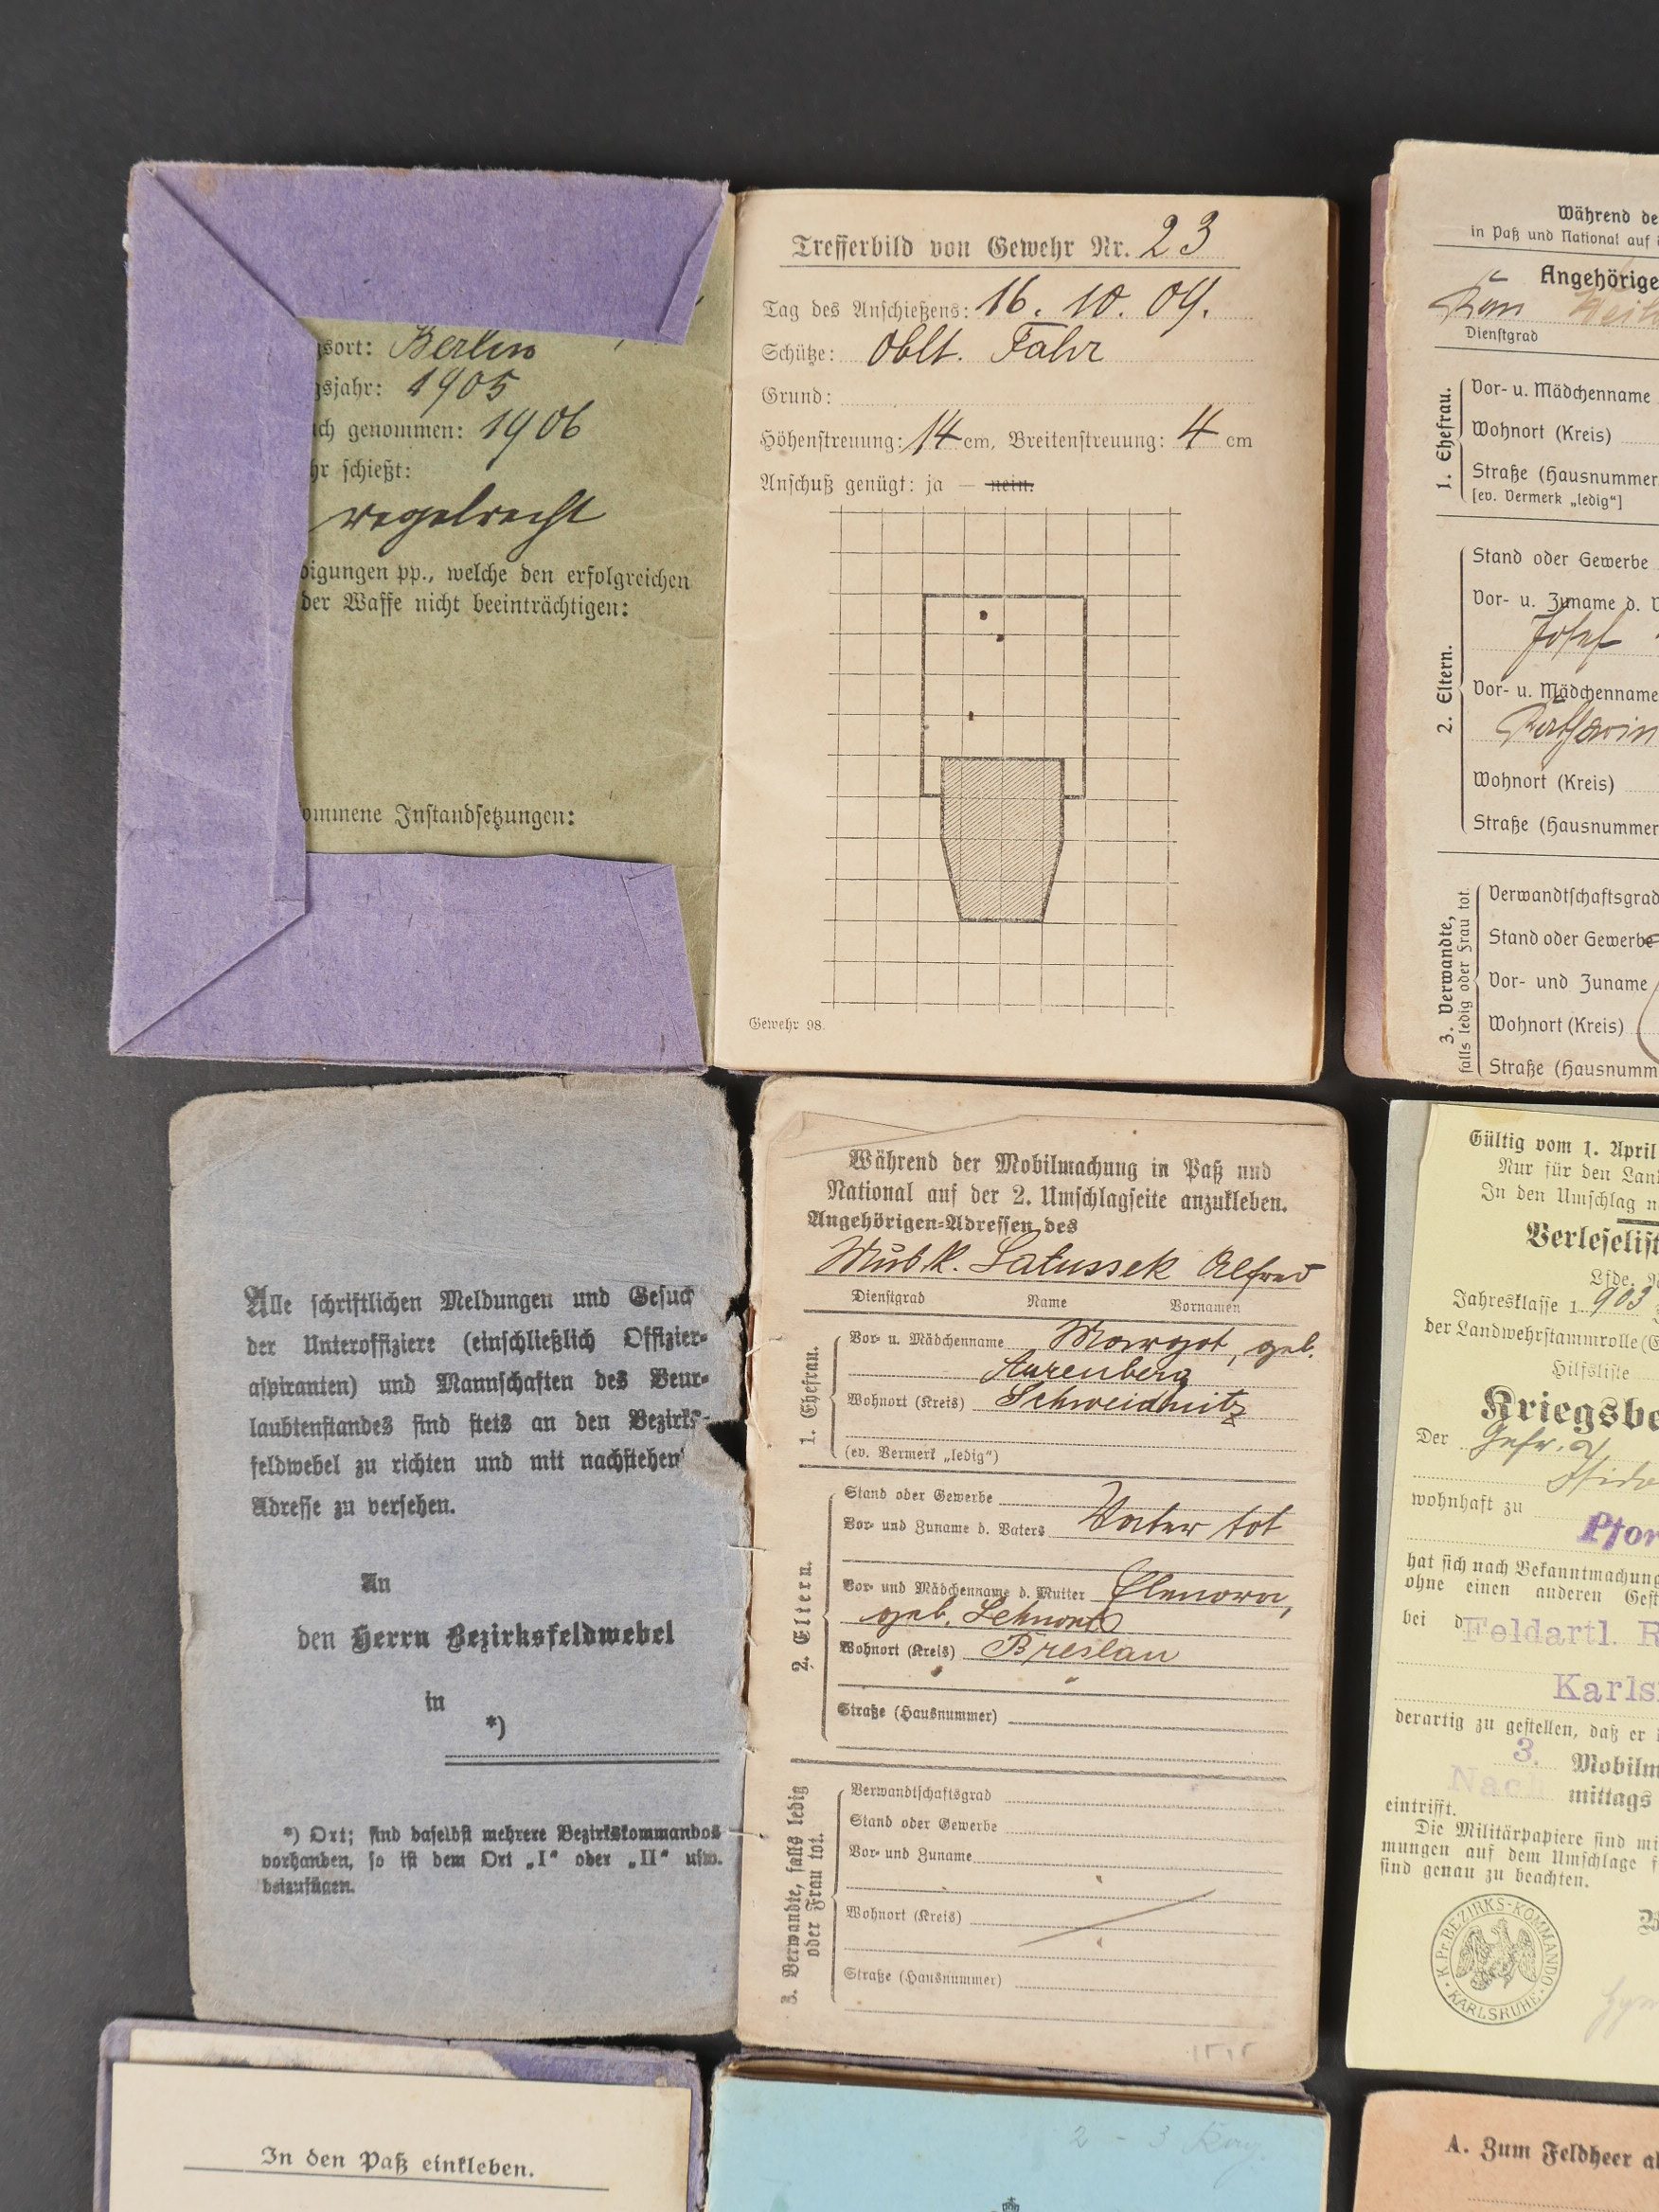 Trefferbild von Gewehr Nr. 23
Tag des Anschießens: 16. 10. 09.
Schütze: Oblt. Fahr
Grund:
Höhenstreuung: 14 cm, Breitenstreuung: 4 cm
Anschuß genügt: ja — nein.
Gewehr 98.
sort: Berlin
gsjahr: 1905
ch genommen: 1906
hr schießt:
regelrecht
digungen pp., welche den erfolgreichen
der Waffe nicht beeinträchtigen:
ommene Instandsetzungen:
Während de
in Paß und National auf
Angehörige
Dienstgrad
1. Ehefrau.
Vor- u. Mädchenname
Wohnort (Kreis)
Straße (Hausnummer
[ev. Vermerk „ledig“]
2. Eltern.
Stand oder Gewerbe
Vor- u. Zuname d. V
Josef
Vor- u. Mädchenname
Katharin
Wohnort (Kreis)
Straße (Hausnummer
3. Verwandte,
falls ledig oder Frau tot.
Verwandtschaftsgrad
Stand oder Gewerbe
Vor- und Zuname
Wohnort (Kreis)
Straße (Hausnumm
Alle schriftlichen Meldungen und Gesuch
der Unteroffiziere (einschließlich Offizier-
aspiranten) und Mannschaften des Beur-
laubtenstandes sind stets an den Bezirks-
feldwebel zu richten und mit nachstehen
Adresse zu versehen.
An
den Herrn Bezirksfeldwebel
in
*)
*) Ort; sind daselbst mehrere Bezirkskommandos
vorhanden, so ist dem Ort „I“ oder „II“ usw.
beizufügen.
Während der Mobilmachung in Paß und
National auf der 2. Umschlagseite anzukleben.
Angehörigen-Adressen des
Musk. Latussek Alfred
Dienstgrad Name Vornamen
1. Ehefrau.
Vor- u. Mädchenname Margot, geb.
Aurenberg
Wohnort (Kreis) Schweidnitz
(ev. Vermerk „ledig“)
2. Eltern.
Stand oder Gewerbe
Vor- und Zuname d. Vaters Vater tot
Vor- und Mädchenname d. Mutter Elenora,
geb.
Wohnort (Kreis) Breslau
Straße (Hausnummer)
3. Verwandte, falls ledig
oder Frau tot.
Verwandtschaftsgrad
Stand oder Gewerbe
Vor- und Zuname
Wohnort (Kreis)
Straße (Hausnummer)
Gültig vom 1. April
Nur für den Lan
In den Umschlag n
Verleselist
Lfde. N
Jahresklasse 1903
der Landwehrstammrolle (E
Hilfsliste
Kriegsbe
Der Gefr. d
wohnhaft zu
Pfor
hat sich nach Bekanntmachung
ohne einen anderen Gest
bei d Feldartl. R
Karls
derartig zu gestellen, daß er
3. Mobilm
Nach mittags
eintrifft.
Die Militärpapiere sind mi
mungen auf dem Umschlage f
sind genau zu beachten.
K. Pr. BEZIRKS-KOMMANDO
KARLSRUHE
In den Paß einkleben.
2 - 3
A. Zum Feldheer a